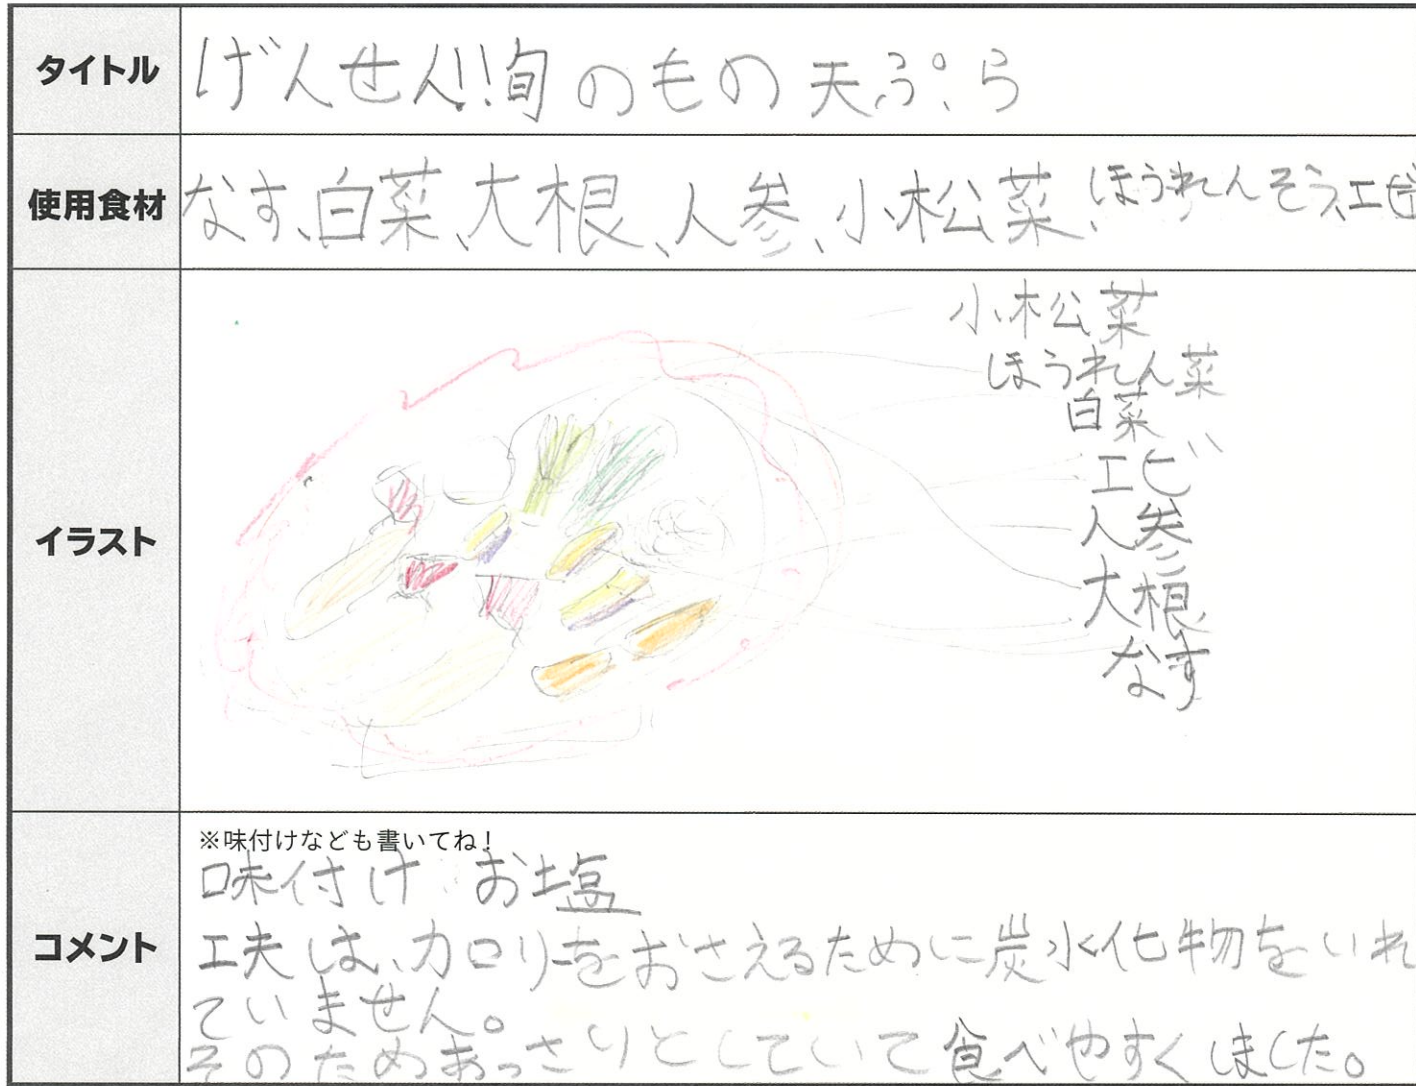 タイトル
げんせん!!旬のもの天ぷら
使用食材
なす、白菜、大根、人参、小松菜、ほうれんそう、エビ
イラスト
小松菜
ほうれん菜
白菜
エビ
人参
大根
なす
コメント
※味付けなども書いてね!
味付け お塩
工夫は、カロリーをおさえるために炭水化物をいれ
ていません。
そのためあっさりとしていて食べやすくしました。